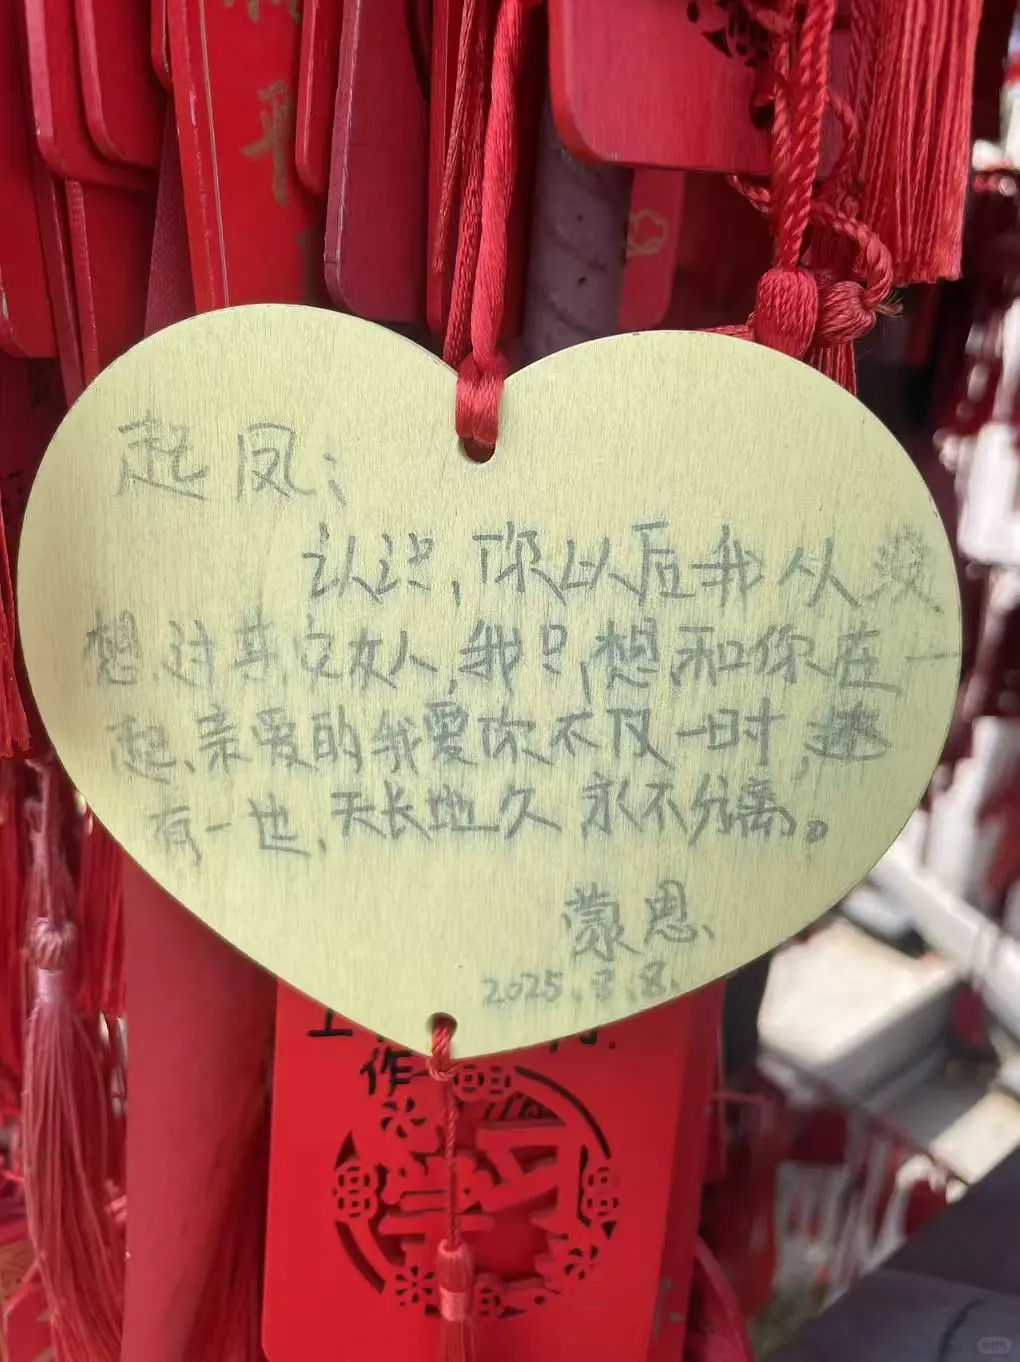 起凤:
认识,你以后我从没
想过其它女人,我只想和你在一
起、亲爱的我爱你不仅一时,还
有一世,天长地久 永不分离。
蒙恩
2025.3.8.
作